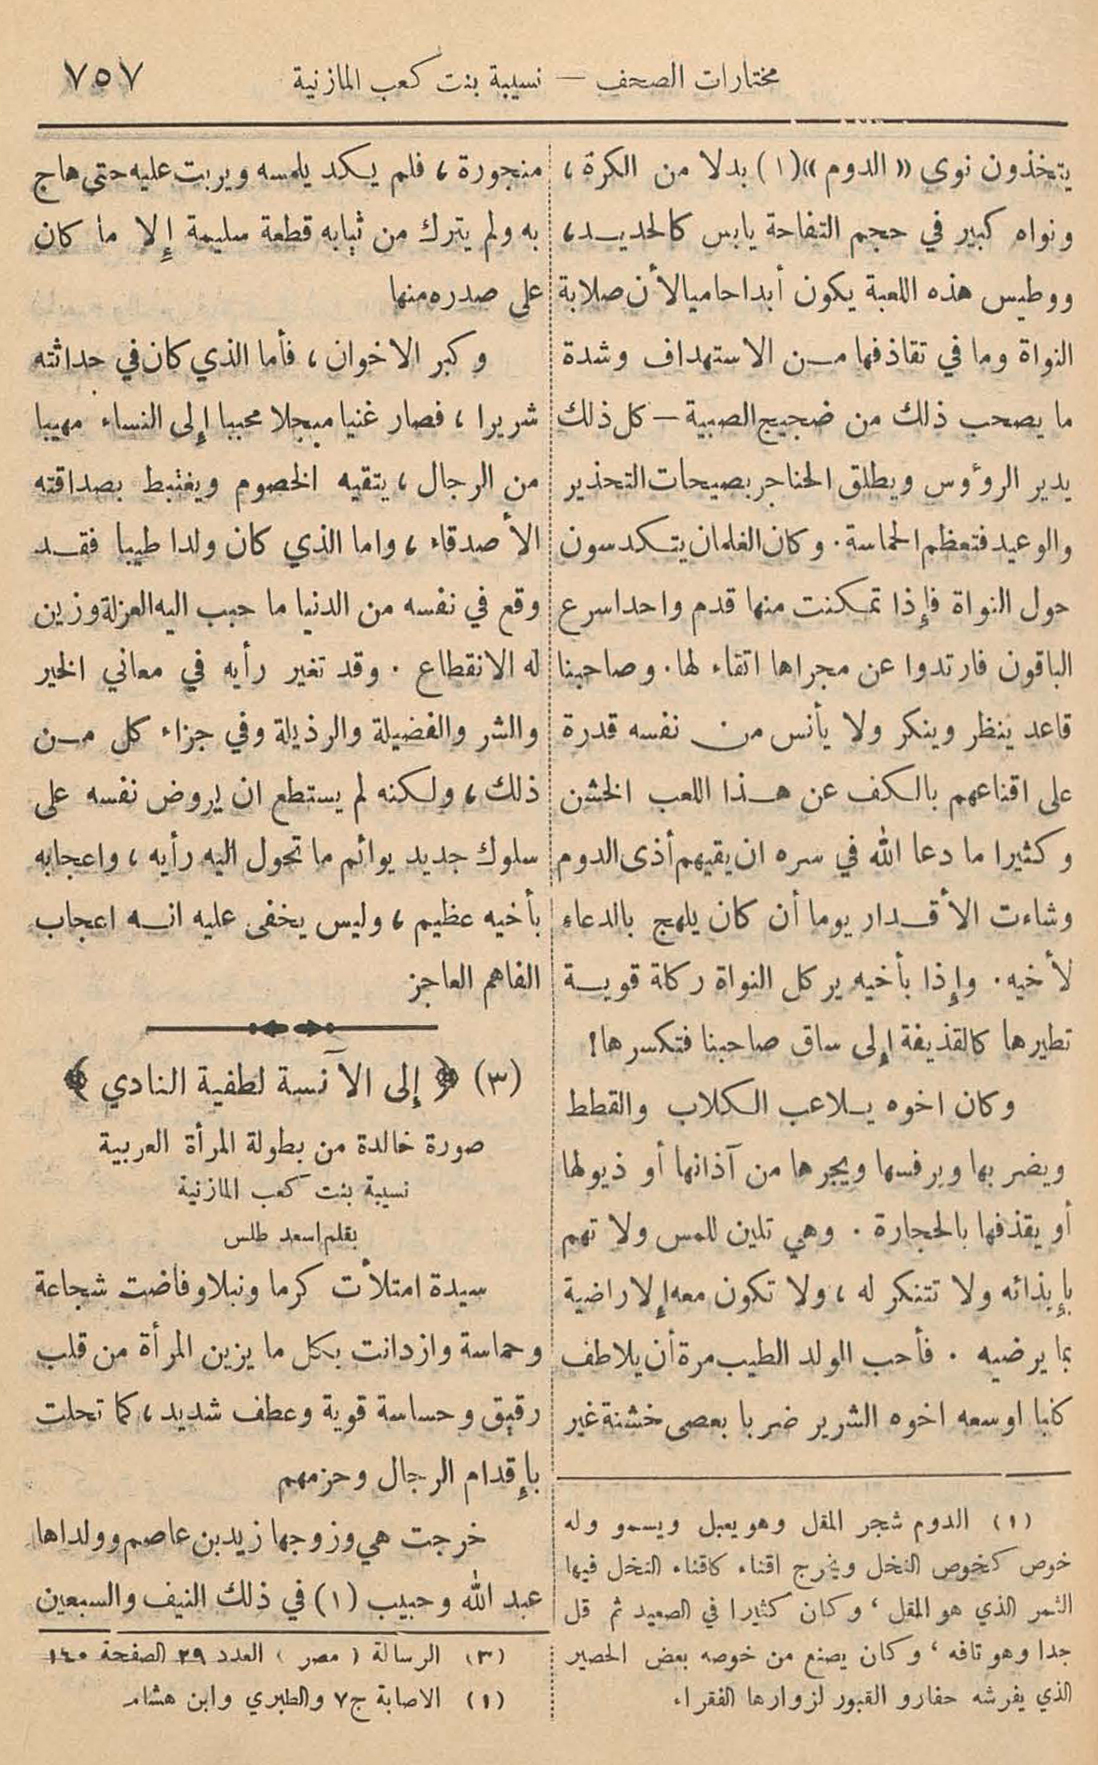 مختارات الصحف — نسيبة بنت كعب المازنية ٧٥٧
يتخذون نوى «الدوم»(١) بدلا من الكرة،
ونواه كبير في حجم التفاحة يابس كالحديد،
ووطيس هذه اللعبة يكون أبدا حاميا لأن صلابة
النواة وما في تقاذفها من الاستهداف وشدة
ما يصحب ذلك من ضجيج الصبية — كل ذلك
يدير الرؤوس ويطلق الحناجر بصيحات التحذير
والوعيد فتعظم الحماسة. وكان الغلمان يتكدسون
حول النواة فإذا تمكنت منها قدم واحد اسرع
الباقون فارتدوا عن مجراها اتقاء لها. وصاحبنا
قاعد ينظر وينكر ولا يأنس من نفسه قدرة
على اقناعهم بالكف عن هذا اللعب الخشن
وكثيرا ما دعا الله في سره ان يقيهم أذى الدوم
وشاءت الأقدار يوما أن كان يلهج بالدعاء
لأخيه. وإذا بأخيه يركل النواة ركلة قوية
تطيرها كالقذيفة إلى ساق صاحبنا فتكسرها!
وكان اخوه يلاعب الكلاب والقطط
ويضربها ويرفسها ويجرها من آذانها أو ذيولها
أو يقذفها بالحجارة. وهي تلين للمس ولا تهم
بإيذائه ولا تتنكر له، ولا تكون معه إلا راضية
بما يرضيه. فأحب الولد الطيب مرة أن يلاطف
كلبا اوسعه اخوه الشرير ضربا بعصى خشنة غير
(١) الدوم شجر المقل وهو يعبل ويسمو وله
خوص كخوص النخل ويخرج اقناء كاقناء النخل فيها
الثمر الذي هو المقل، وكان كثيرا في الصعيد ثم قل
جدا وهو تافه، وكان يصنع من خوصه بعض الحصير
الذي يفرشه حفارو القبور لزوارها الفقراء
منجورة، فلم يكد يلمسه ويربت عليه حتى هاج
به ولم يترك من ثيابه قطعة سليمة إلا ما كان
على صدره منها
وكبر الاخوان، فأما الذي كان في حداثته
شريرا، فصار غنيا مبجلا محببا إلى النساء مهيبا
من الرجال، يتقيه الخصوم ويغتبط بصداقته
الأصدقاء، واما الذي كان ولدا طيبا فقد
وقع في نفسه من الدنيا ما حبب اليه العزلة وزين
له الانقطاع. وقد تغير رأيه في معاني الخير
والشر والفضيلة والرذيلة وفي جزاء كل من
ذلك، ولكنه لم يستطع ان يروض نفسه على
سلوك جديد يوائم ما تحول اليه رأيه، واعجابه
بأخيه عظيم، وليس يخفى عليه انه اعجاب
الفاهم العاجز
(٣) ﴿ إلى الآنسة لطفية النادي ﴾
صورة خالدة من بطولة المرأة العربية
نسيبة بنت كعب المازنية
بقلم اسعد طلس
سيدة امتلأت كرما ونبلا وفاضت شجاعة
وحماسة وازدانت بكل ما يزين المرأة من قلب
رقيق وحساسة قوية وعطف شديد، كما تحلت
بإقدام الرجال وحزمهم
خرجت هي وزوجها زيد بن عاصم وولداها
عبد الله وحبيب (١) في ذلك النيف والسبعين
(٣) الرسالة (مصر) العدد ٢٩ الصفحة ١٤٠
(١) الاصابة ج٧ والطبري وابن هشام